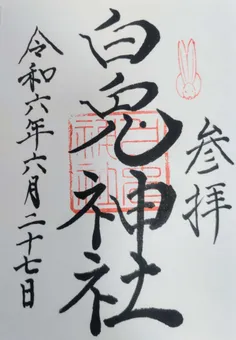 参拝
白兎神社
令和六年六月二十七日